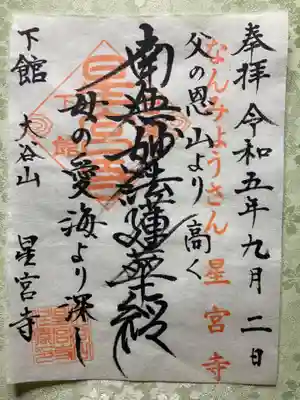 奉拝 令和五年九月二日
なんみようさん 星宮寺
父の恩山より高く
南無妙法蓮華経
母の愛海より深し
下館 大谷山 星宮寺
下館